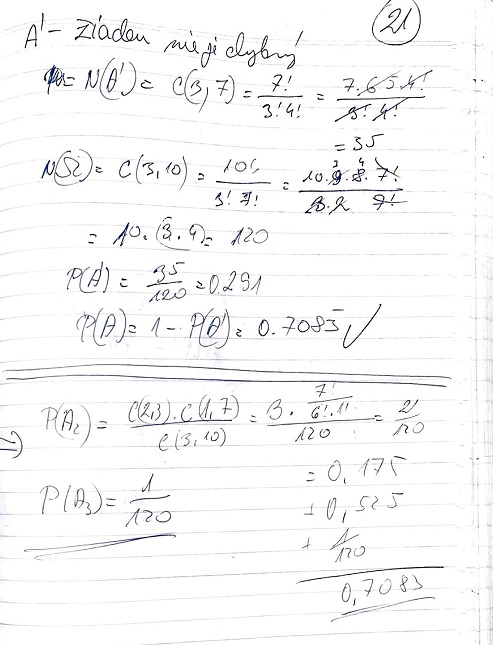 21
A' - žiaden nie je chybný
N(A') = C(3,7) = 7!/3!4! = 7.6.5.4!/3!.4!
= 35
N(Ω) = C(3,10) = 10!/3!7! = 10.9.8.7!/3.2 7!
= 10.(3.4) = 120
P(A') = 35/120 = 0.291
P(A) = 1 - P(A') = 0.7085 ✓
P(A₂) = C(2,3).C(1,7)/C(3,10) = 3 . 7!/6!.1!/120 = 21/120
= 0,175
P(A₃) = 1/120
+ 0,525
+ 1/120
0,7083